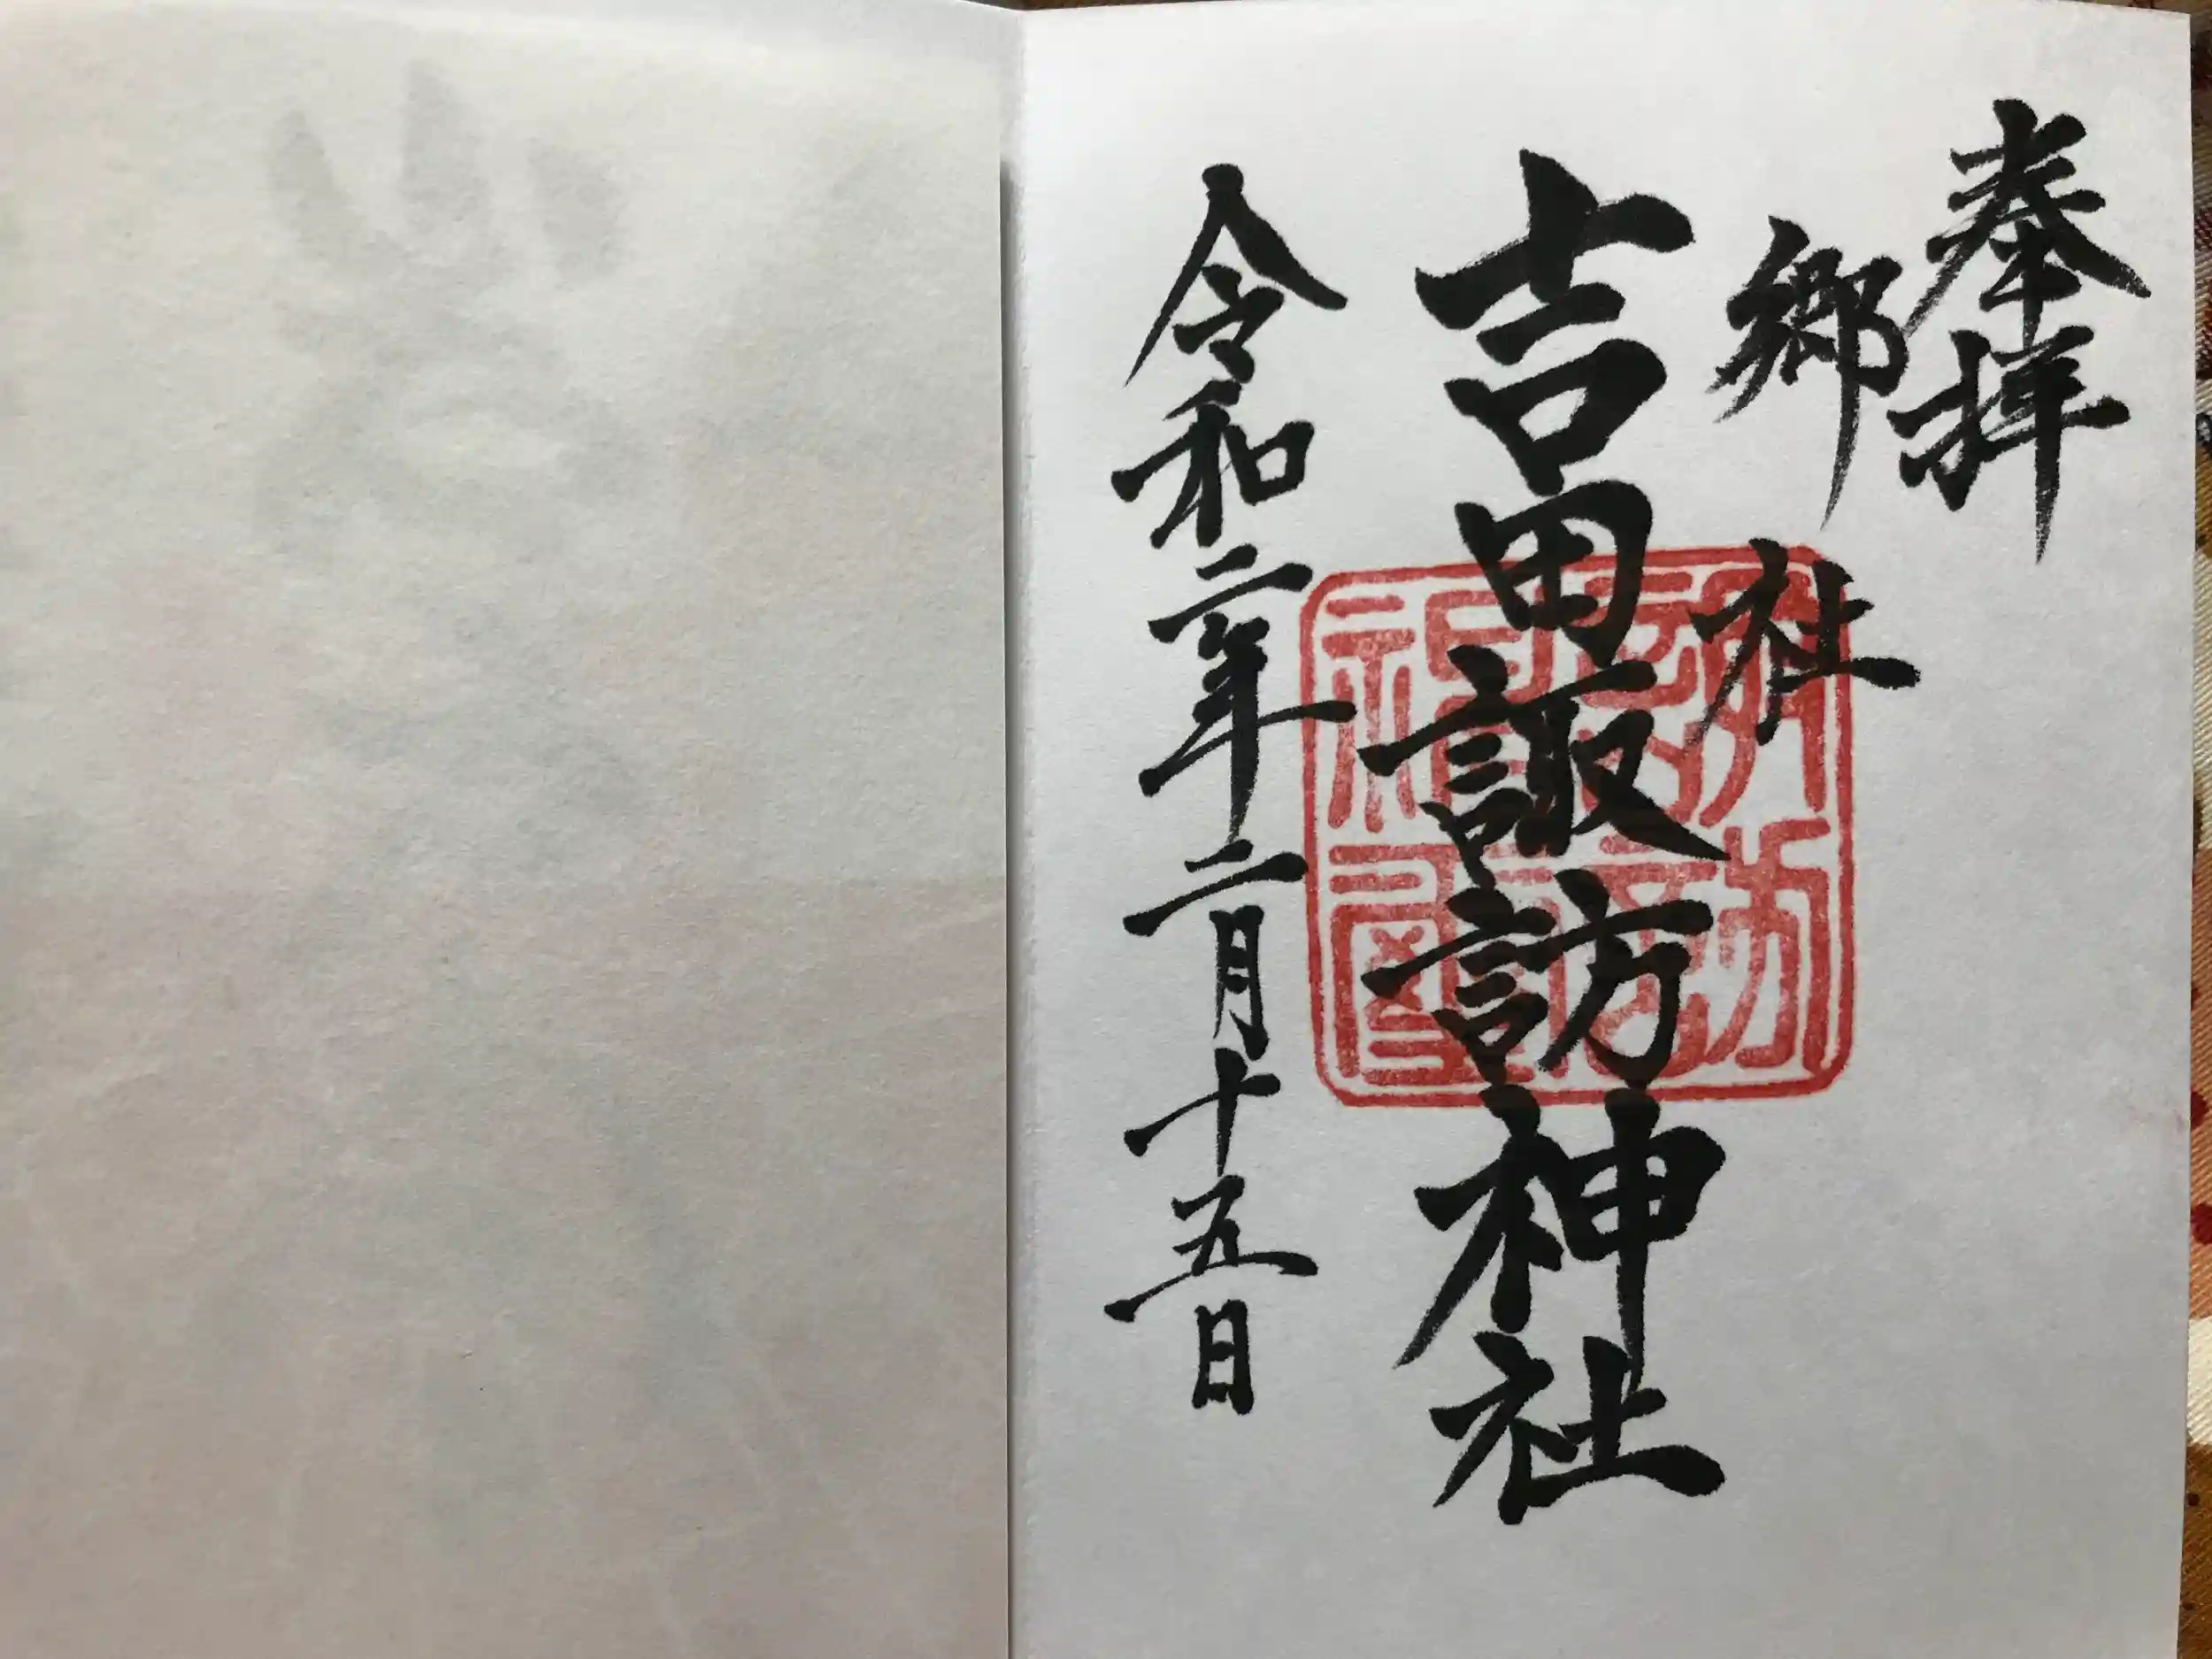 奉拝
郷社
吉田諏訪神社
令和二年二月十五日